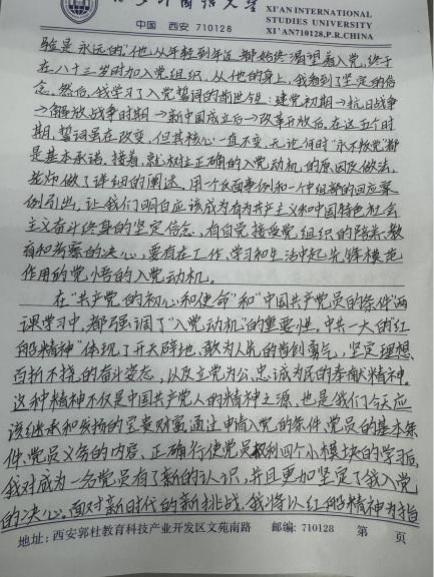 西安外国语大学 XI'AN INTERNATIONAL
STUDIES UNIVERSITY
中国 西安 710128 XI'AN710128,P.R.CHINA
验是永远的。他从年轻到年迈都始终渴望着入党,终于
在八十三岁时加入党组织,从他的身上,我看到了坚定的信
念。然后,我学习了入党誓词的前世今生:建党初期→抗日战争
→解放战争时期→新中国成立后→改革开放后,在这五个时
期,誓词虽在改变,但其核心一直不变,无论何时"永不叛党"都
是基本承诺。接着,就树立正确的入党动机,的原因及做法,
老师做了详细的阐述,用一个反面事例和一个组部的回应案
例引出,让我们明白应该成为有为共产主义和中国特色社会
主义奋斗终身的坚定信念,有自觉接受党组织的培养、教
育和考察的决心,要有在工作、学习和生活中起先锋模范
作用的觉悟的入党动机。
在"共产党的初心和使命"和"中国共产党员的条件"两
课学习中,都强调了"入党动机"的重要性。中共一大的"红
船精神"体现了开天辟地、敢为人先的首创勇气,,坚定理想、
百折不挠的奋斗姿态,以及立党为公、忠诚为民的奉献精神。
这种精神不仅是中国共产党人的精神之源,也是我们今天应
该继承和发扬的宝贵财富。通过申请入党的条件、党员的基本条
件、党员义务的内容、正确行使党员权利四个小模块的学习后,
我对成为一名党员有了新的认识,并且更加坚定了我入党
的决心。面对新时代的新挑战,我将以红船精神为指
地址:西安郭杜教育科技产业开发区文苑南路 邮编:710128 第 页